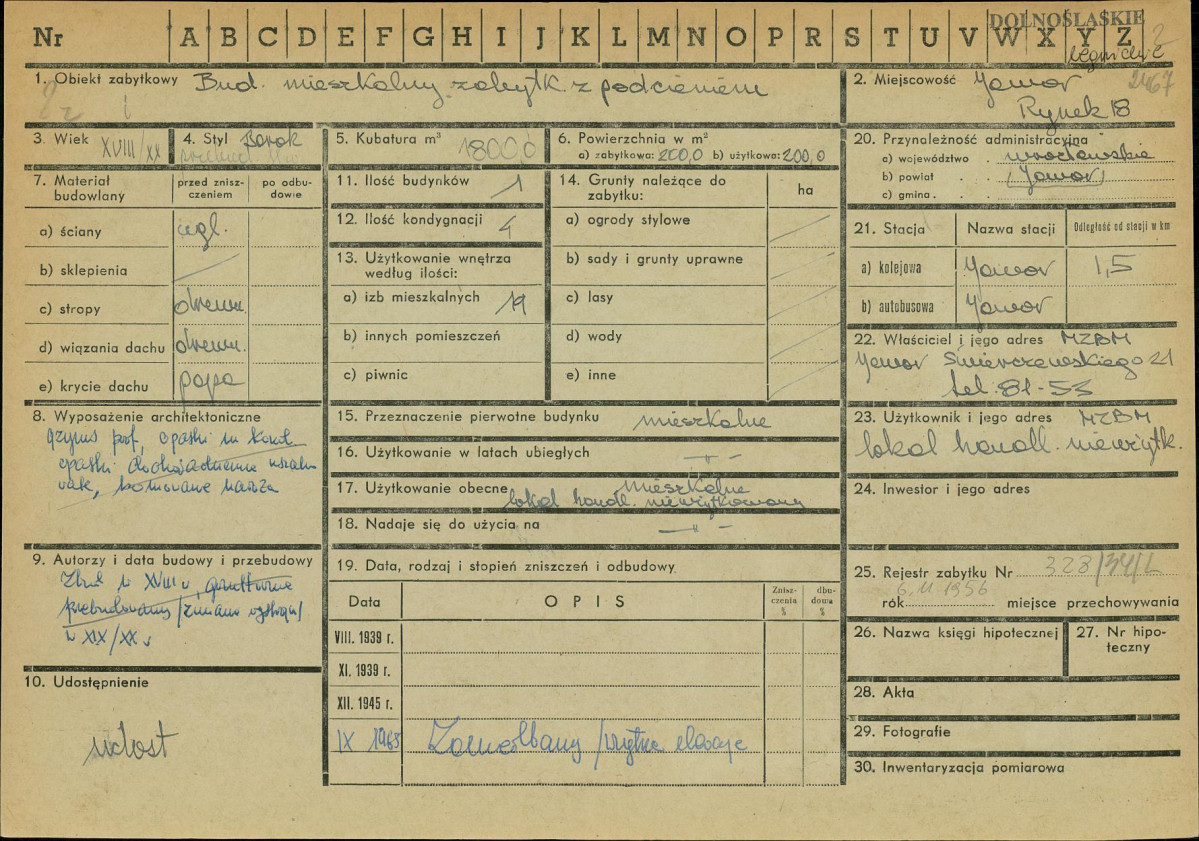 DOLNOŚLĄSKIE
Nr A B C D E F G H I J K L M N O P R S T U V W X Y Z 2
legnickie
1. Obiekt zabytkowy Bud. mieszkalny zabytk. z podcieniem
2. Miejscowość Jawor 2467
Rynek 18
3. Wiek XVIII/XX
4. Styl Barok
5. Kubatura m³ 1800,0
6. Powierzchnia w m²
a) zabytkowa: 200,0 b) użytkowa: 200,0
7. Materiał budowlany
przed zniszczeniem
po odbudowie
a) ściany cegl.
b) sklepienia
c) stropy drewn.
d) wiązania dachu drewn.
e) krycie dachu papa
8. Wyposażenie architektoniczne
gzyms prof,
9. Autorzy i data budowy i przebudowy
XVIII w,
przebudowany /zmiana
w XIX/XX w
10. Udostępnienie
udost
11. Ilość budynków 1
12. Ilość kondygnacji 4
13. Użytkowanie wnętrza
według ilości:
a) izb mieszkalnych 19
b) innych pomieszczeń
c) piwnic
14. Grunty należące do
zabytku:
ha
a) ogrody stylowe
b) sady i grunty uprawne
c) lasy
d) wody
e) inne
15. Przeznaczenie pierwotne budynku mieszkalne
16. Użytkowanie w latach ubiegłych — " —
17. Użytkowanie obecne mieszkalne
lokal handl. nieużytkowany
18. Nadaje się do użycia na — " —
19. Data, rodzaj i stopień zniszczeń i odbudowy
Data
OPIS
Zniszczenia %
dbudowa %
VIII. 1939 r.
XI. 1939 r.
XII. 1945 r.
IX 1965 Zaniedbany
20. Przynależność administracyjna
a) województwo wrocławskie
b) powiat (Jawor)
c) gmina
21. Stacja
Nazwa stacji
Odległość od stacji w km
a) kolejowa Jawor 1,5
b) autobusowa Jawor
22. Właściciel i jego adres MZBM
Jawor Świerczewskiego 21
tel. 81-53
23. Użytkownik i jego adres MZBM
lokal handl. nieużytk.
24. Inwestor i jego adres
25. Rejestr zabytku Nr 323/34/L
rok 6. 11 1956 miejsce przechowywania
26. Nazwa księgi hipotecznej
27. Nr hipoteczny
28. Akta
29. Fotografie
30. Inwentaryzacja pomiarowa